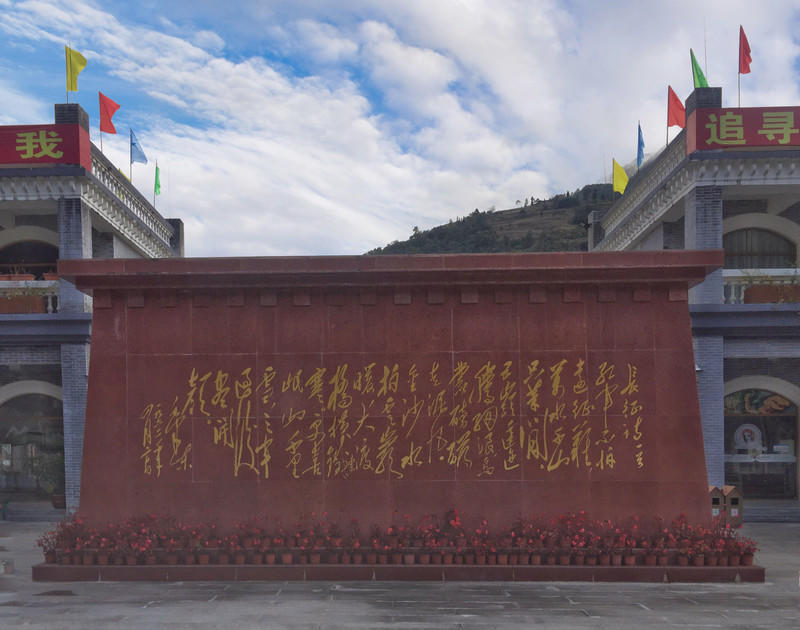 我
追寻
长征诗一首
红军不怕
远征难
万水千山
只等闲
五岭逶迤
腾细浪乌
蒙磅礴
走泥丸
金沙水
拍云崖
暖大渡
桥横铁索
寒更喜
岷山千里
雪三军
过后
尽开
颜
毛泽东